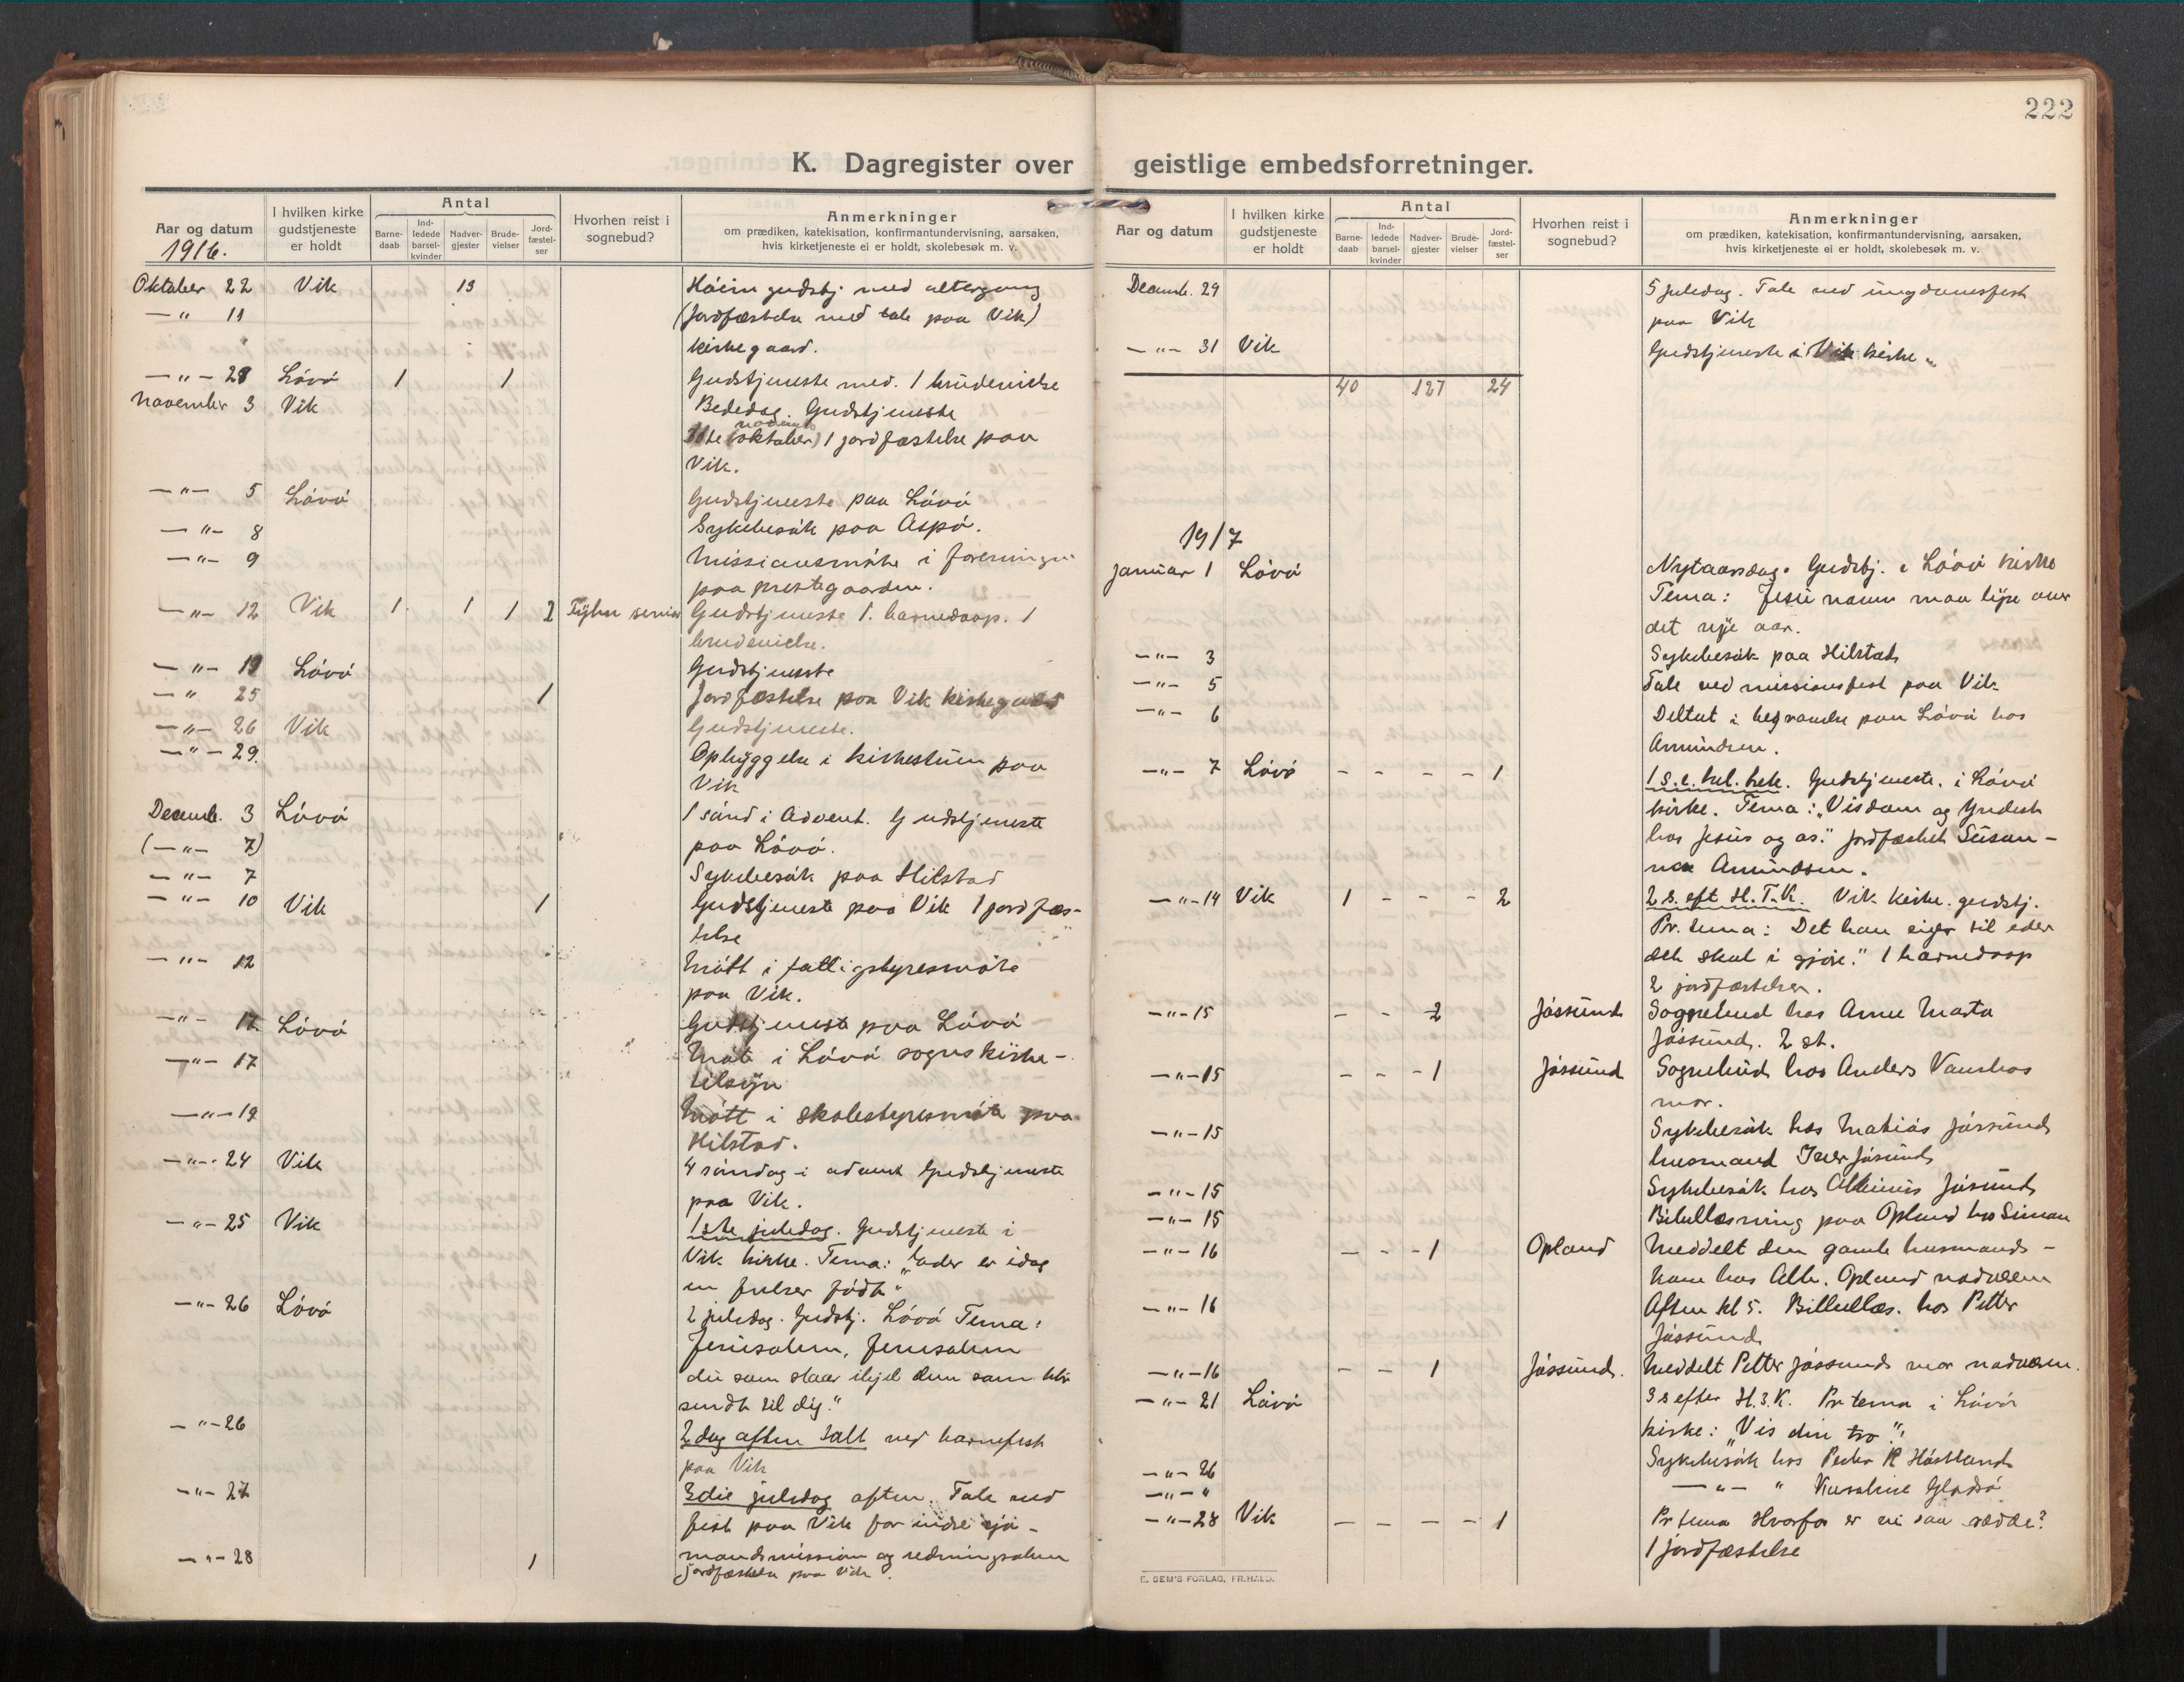 222
K. Dagregister over geistlige embedsforretninger.
Aar og datum
1916.
I hvilken kirke gudstjeneste er holdt
Antal
Barne-daab
Ind-ledede barsel-kvinder
Nadver-gjester
Brude-vielser
Jord-fæstel-ser
Hvorhen reist i sognebud?
Anmerkninger
om prædiken, katekisation, konfirmantundervisning, aarsaken,
hvis kirketjeneste ei er holdt, skolebesøk m. v.
Oktober 22 Vik 13 gudstj med altergang
— " 11 (Jordfæstelse med tale paa Vik)
kirkegaard.
— " — 28 Løvø 1 1 Gudstjeneste med. 1 brudevielse
November 3 Vik Bededag. Gudstjeneste
(oktober) 1 jordfæstelse paa
Vik.
— " — 5 Løvø Gudstjeneste paa Løvø
— " — 8 Sykebesøk paa Aspø.
— " — 9 Missionsmøte i foreningen
paa prestegaarden.
— " — 12 Vik 1 1 1 2 Gudstjeneste 1. barnedaap. 1
brudevielse.
— " — 19 Løvø Gudstjeneste
— " 25 1 Jordfæstelse paa Vik kirkegaard
— " — 26 Vik Gudstjeneste.
— " — 29. Opbyggelse i kirkestuen paa
Vik
Decemb. 3 Løvø 1 sønd i Advent. Gudstjeneste
(— " — 7) paa Løvø.
— " — 7 Sykebesøk paa Hilstad
— " — 10 Vik 1 Gudstjeneste paa Vik 1 jordfæs-
telse
— " — 12 Møtt i fattigstyresmøte
paa Vik.
— " — 17. Løvø Gudstjeneste paa Løvø
— " — 17 Møte i Løvø sogns kirke-
tilsyn
— " — 19 Møtt i skolestyresmøte paa
Hilstad.
— " — 24 Vik 4 søndag i advent Gudstjeneste
paa Vik.
— " — 25 Vik 1ste juledag. Gudstjeneste i
Vik kirke. Tema: "Eder er idag
en frelser født"
— " — 26 Løvø 2 juledag. Gudstj. Løvø Tema:
Jerusalem, Jerusalem
du som slaar ihjel dem som blir
sendt til dig."
— " — 26 2 dag aften talt ved barnefest
paa Vik
— " — 27 3die juledag aften. Tale ved
fest paa Vik for indre sjø-
— " — 28 1 mandsmission og redningssaken
jordfæstelse paa Vik.
Aar og datum
I hvilken kirke gudstjeneste er holdt
Antal
Barne-daab
Ind-ledede barsel-kvinder
Nadver-gjester
Brude-vielser
Jord-fæstel-ser
Hvorhen reist i sognebud?
Anmerkninger
om prædiken, katekisation, konfirmantundervisning, aarsaken,
hvis kirketjeneste ei er holdt, skolebesøk m. v.
Decemb. 29 5 juledag. Tale ved ungdomsfest
paa Vik
— " — 31 Vik Gudstjeneste i Vik kirke
40 127 24
1917
Januar 1 Løvø Nytaarsdag. Gudstj. i Løvø kirke
Tema: Jesu navn maa lyse over
det nye aar.
— " — 3 Sykebesøk paa Hilstad
— " — 5 Tale ved missionsfest paa Vik
— " — 6 Deltat i begravelse paa Løvø hos
Amundsen.
— " — 7 Løvø - - - - 1 1 s. e. hel. trek. Gudstjeneste. i Løvø
kirke. Tema: "Visdom og Yndest
hos Jesus og os." Jordfæstet Susan-
na Amundsen.
— " — 14 Vik 1 - - - 2 2 s. eft H.T.K. Vik kirke. gudstj.
Pr. tema: Det han siger til eder
det skal i gjøre." 1 barnedaap
2 jordfæstelser.
— " — 15 - - 2 Jøssund Sognebud hos Anne Marta
Jøssund. 2 st.
— " — 15 - - - 1 Jøssund Sognebud hos Anders
mor.
— " — 15 Sykebesøk hos Matias Jøssund
husmand Iver Jøsund
— " — 15 Sykebesøk hos Jøsund
— " — 15 Bibellæsning paa Opland hos Simon
— " — 16 - - - 1 Opland Meddelt den gamle husmands-
kone hos Alb. Opland nadveren
— " — 16 Aften kl 5. Bibellæs. hos Petter
Jøssund
— " — 16 - - 1 Jøssund. Meddelt Petter Jøssunds mor nadveren.
— " — 21 Løvø 3 s efter H.3.K. Pr tema i Løvø
kirke: "Vis din tro."
— " — 26 Sykebesøk hos Peder
— " — " — " — "
— " — 28 Vik - - - - 1 Pr tema Hvorfor er vi saa rædde?
1 jordfæstelse
E. SEM'S FORLAG, FR.HALD.